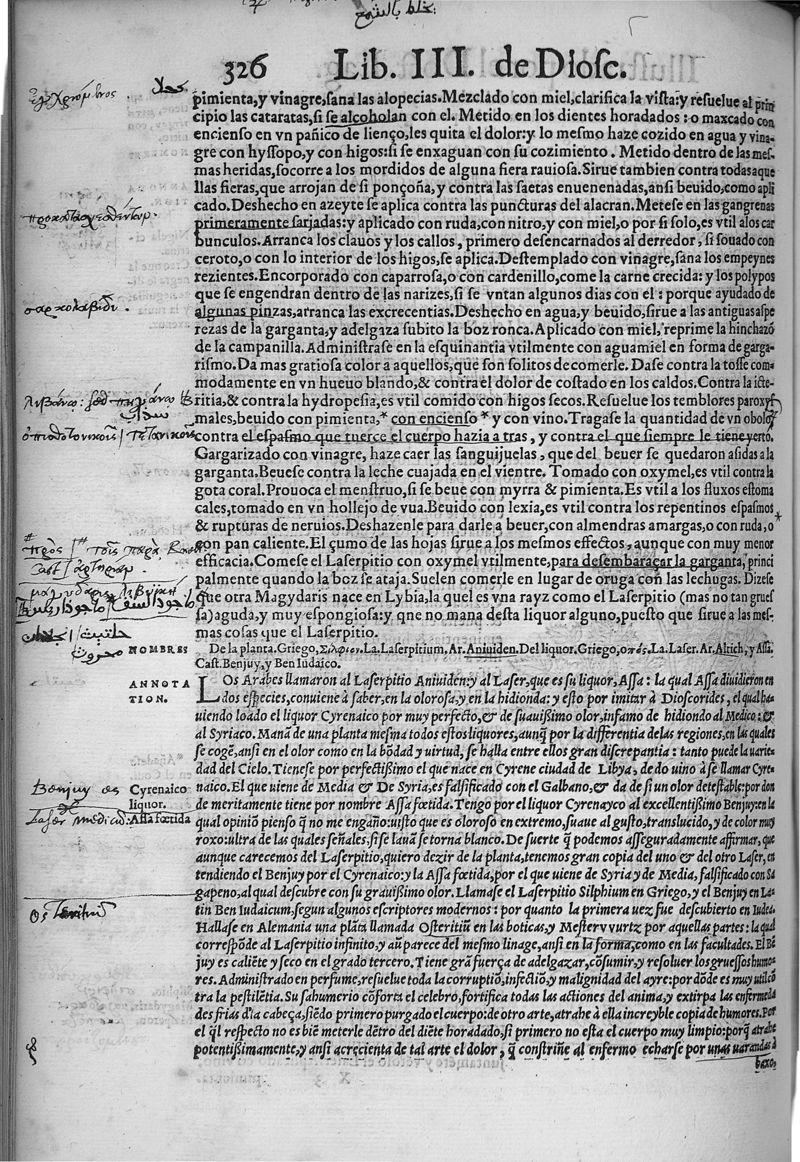 326 Lib. III. de Diosc.
pimienta, y vinagre, sana las alopecias. Mezclado con miel, clarifica la vista: y resuelue al prin
cipio las cataratas, si se alcoholan con el. Metido en los dientes horadados: o maxcado con
encienso en vn pañico de lienço, les quita el dolor: y lo mesmo haze cozido en agua y vina-
gre con hyssopo, y con higos: si se enxaguan con su cozimiento. Metido dentro de las mes,
mas heridas, socorre a los mordidos de alguna fiera rauiosa. Sirue tambien contra todas aque
llas fieras, que arrojan de si ponçoña, y contra las saetas enuenenadas, ansi beuido, como apli
cado. Deshecho en azeyte se aplica contra las puncturas del alacran. Metese en las gangrenas
primeramente sarjadas: y aplicado con ruda, con nitro, y con miel, o por si solo, es vtil a los car
bunculos. Arranca los clauos y los callos, primero desencarnados al derredor, si souado con
ceroto, o con lo interior de los higos, se aplica. Destemplado con vinagre, sana los empeynes
rezientes. Encorporado con caparrosa, o con cardenillo, come la carne crecida: y los polypos
que se engendran dentro de las narizes, si se vntan algunos dias con el: porque ayudado de
algunas pinzas, atranca las excrecentias. Deshecho en agua, y beuido, sirue a las antiguas aspe
rezas de la garganta, y adelgaza subito la boz ronca. Aplicado con miel, reprime la hinchazõ
de la campanilla. Administrase en la esquinantia vtilmente con aguamiel en forma de garga-
rismo. Da mas gratiosa color a aquellos, que son solitos de comerle. Dase contra la tosse com-
modamente en vn hueuo blando, & contra el dolor de costado en los caldos. Contra la icte-
ritia, & contra la hydropesia, es vtil comido con higos secos. Resuelue los temblores paroxys
males, beuido con pimienta, * con encienso * y con vino. Tragase la quantidad de vn obolo
contra el espasmo que tuerce el cuerpo hazia a tras, y contra el que siempre le tiene yerto.
Gargarizado con vinagre, haze caer las sanguijuelas, que del beuer se quedaron asidas a la
garganta. Beuese contra la leche cuajada en el vientre. Tomado con oxymel, es vtil contra la
gota coral. Prouoca el menstruo, si se beue con myrra & pimienta. Es vtil a los fluxos estoma
cales, tomado en vn hollejo de vua. Beuido con lexia, es vtil contra los repentinos espasmos
& rupturas de neruios. Deshazenle para darle a beuer, con almendras amargas, o con ruda, o
con pan caliente. El çumo de las hojas sirue a los mesmos effectos, aunque con muy menor
efficacia. Comese el Laserpitio con oxymel vtilmente, para desembaraçar la garganta, princi
palmente quando la boz se ataja. Suelen comerle en lugar de oruga con las lechugas. Dizese
que otra Magydaris nace en Lybia, la quel es vna rayz como el Laserpitio (mas no tan grues
sa) aguda, y muy espongiosa: y que no mana desta liquor alguno, puesto que sirue a las mes,
mas cosas que el Laserpitio.
NOMBRES De la planta. Griego, Σίλφιον. La. Laserpitium, Ar. Aniuiden. Del liquor, Griego, οπός. La. Laser. Ar. Altich, y Assa.
Cast. Benjuy, y Ben Iudaico.
ANNOTA
TION.
LOs Arabes llamaron al Laserpitio Aniuiden: y al Laser, que es su liquor, Assa: la qual Assa diuidieron en
dos especies, conuiene à saber, en la olorosa, y en la hidionda: y esto por imitar à Dioscorides, el qual ha-
uiendo loado el liquor Cyrenaico por muy perfecto, & de suauißimo olor, infamo de hidiondo al Medico: &
al Syriaco. Manã de una planta mesma todos estos liquores, aunq̃ por la differentia de las regiones, en las quales
se cogẽ, ansi en el olor como en la bõdad y uirtud, se halla entre ellos gran discrepantia: tanto puede la uarie-
dad del Cielo. Tienese por perfectißimo el que nace en Cyrene ciudad de Libya, de do uino à se llamar Cyre-
naico. El que uiene de Media & De Syria, es falsificado con el Galbano, & da de si un olor detestable: por don
de meritamente tiene por nombre Assa fœtida. Tengo por el liquor Cyrenayco al excellentißimo Benjuy: en la
qual opiniõ pienso q̃ no me engaño: uisto que es oloroso en extremo, suaue al gusto, translucido, y de color muy
roxo: ultra de las quales señales, si se lauã se torna blanco. De suerte q̃ podemos asseguradamente affirmar, que
aunque carecemos del Laserpitio, quiero dezir de la planta, tenemos gran copia del uno & del otro Laser, en
tendiendo el Benjuy por el Cyrenaico: y la Assa fœtida, por el que uiene de Syria y de Media, falsificado con Sa
gapeno, al qual descubre con su grauißimo olor. Llamase el Laserpitio Silphium en Griego, y el Benjuy en La-
tin Ben Iudaicum, segun algunos escriptores modernos: por quanto la primera uez fue descubierto en Iudea.
Hallase en Alemania una plãta llamada Osteritiũ en las boticas, y Mestervvurtz por aquellas partes: la qual
correspõde al Laserpitio infinito, y aũ parece del mesmo linage, ansi en la forma, como en las facultades. El Bẽ
juy es caliẽte y seco en el grado tercero. Tiene grã fuerça de adelgazar, cõsumir, y resoluer los gruessos humo-
res. Administrado en perfume, resuelue toda la corruptiõ, infectiõ, y malignidad del ayre: por dõde es muy util cõ
tra la pestilẽtia. Su sahumerio cõforta el celebro, fortifica todas las actiones del anima, y extirpa las enfermeda
des frias d'la cabeça, siẽdo primero purgado el cuerpo: de otro arte, atrahe à ella increyble copia de humores. Por
el q̃l respecto no es biẽ meterle dẽtro del diẽte horadado, si primero no esta el cuerpo muy limpio: porq̃ atrahe
potentißimamente, y ansi acreçienta de tal arte el dolor, q̃ constriñe al enfermo echarse por unas uarandas à
baxo,
Benjuy es Cyrenaico
liquor.
Laser medicum: Assa fœtida